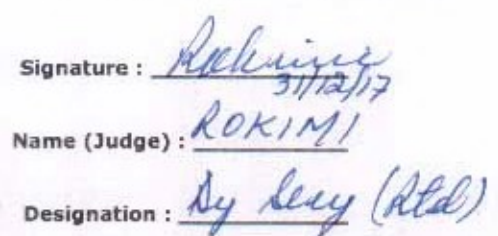 Signature : Rokimi
31/12/17
Name (Judge) : ROKIMI
Designation : Dy Secy (Rtd)